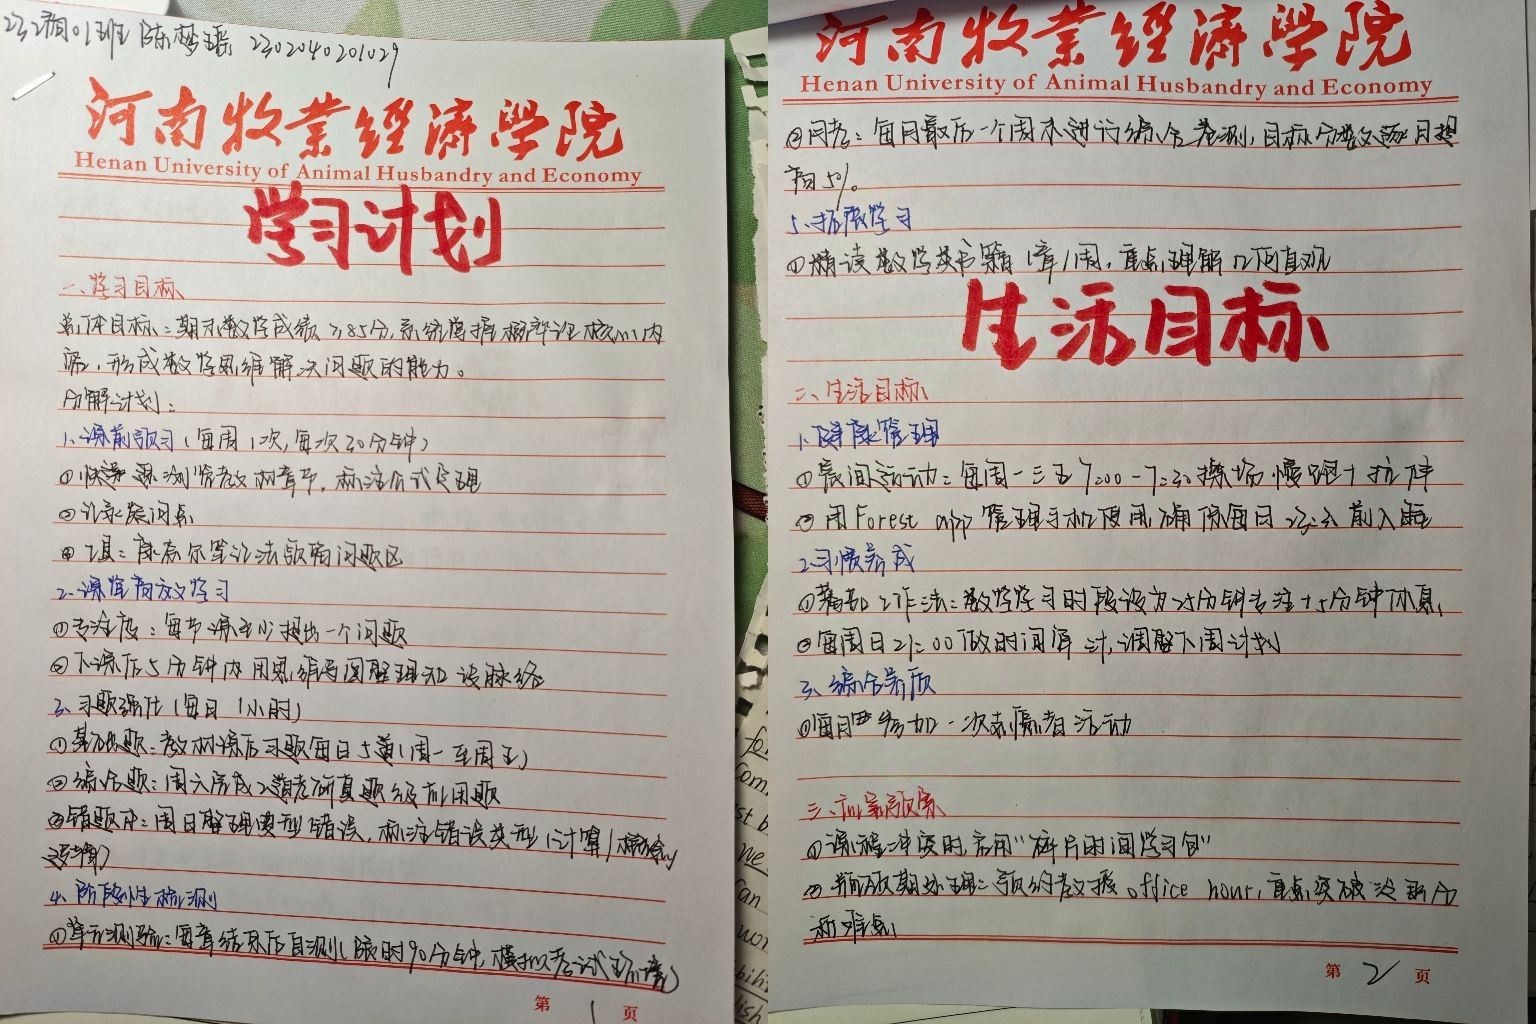 陈梦瑶 2302040201029
河南牧业经济学院
Henan University of Animal Husbandry and Economy
学习计划
一、学习目标
总体目标：期末数学成绩≥85分，系统掌握概率论核心内
容，形成数学思维解决问题的能力。
分解计划：
1、课前预习（每周1次，每次30分钟）
①快速浏览教材章节，标注公式定理
②记录疑问点
④工具：康奈尔笔记法预留问题区
2、课堂高效学习
①专注度：每节课至少提出一个问题
②下课后5分钟内用思维导图整理知识脉络
3、习题强化（每日1小时）
①基础题：教材课后习题每日5道（周一至周五）
②综合题：周六完成2道考研真题级应用题
③错题本：周日整理典型错误，标注错误类型（计算/概念/
逻辑）
4、阶段性检测
①单元测验：每章结束后自测（限时90分钟，模拟考试环境）
第 1 页
河南牧业经济学院
Henan University of Animal Husbandry and Economy
②月考：每月最后一个周末进行综合卷测，目标分数逐月提
高5%。
5、拓展学习
①精读数学类书籍1章/周，重点理解几何直观
生活目标
二、生活目标
1、健康管理
①晨间运动：每周一三五7:00-7:30操场慢跑+拉伸
②用Forest app管理手机使用，确保每日23:30前入睡
2、习惯养成
①番茄工作法：数学学习时段设为25分钟专注+5分钟休息，
②每周日21:00做时间审计，调整下周计划
3、综合素质
①每月参加一次志愿者活动
三、应急预案
①课程冲突时启用"碎片时间学习包"
②瓶颈期处理：预约教授office hour，重点突破
难点
第 2 页